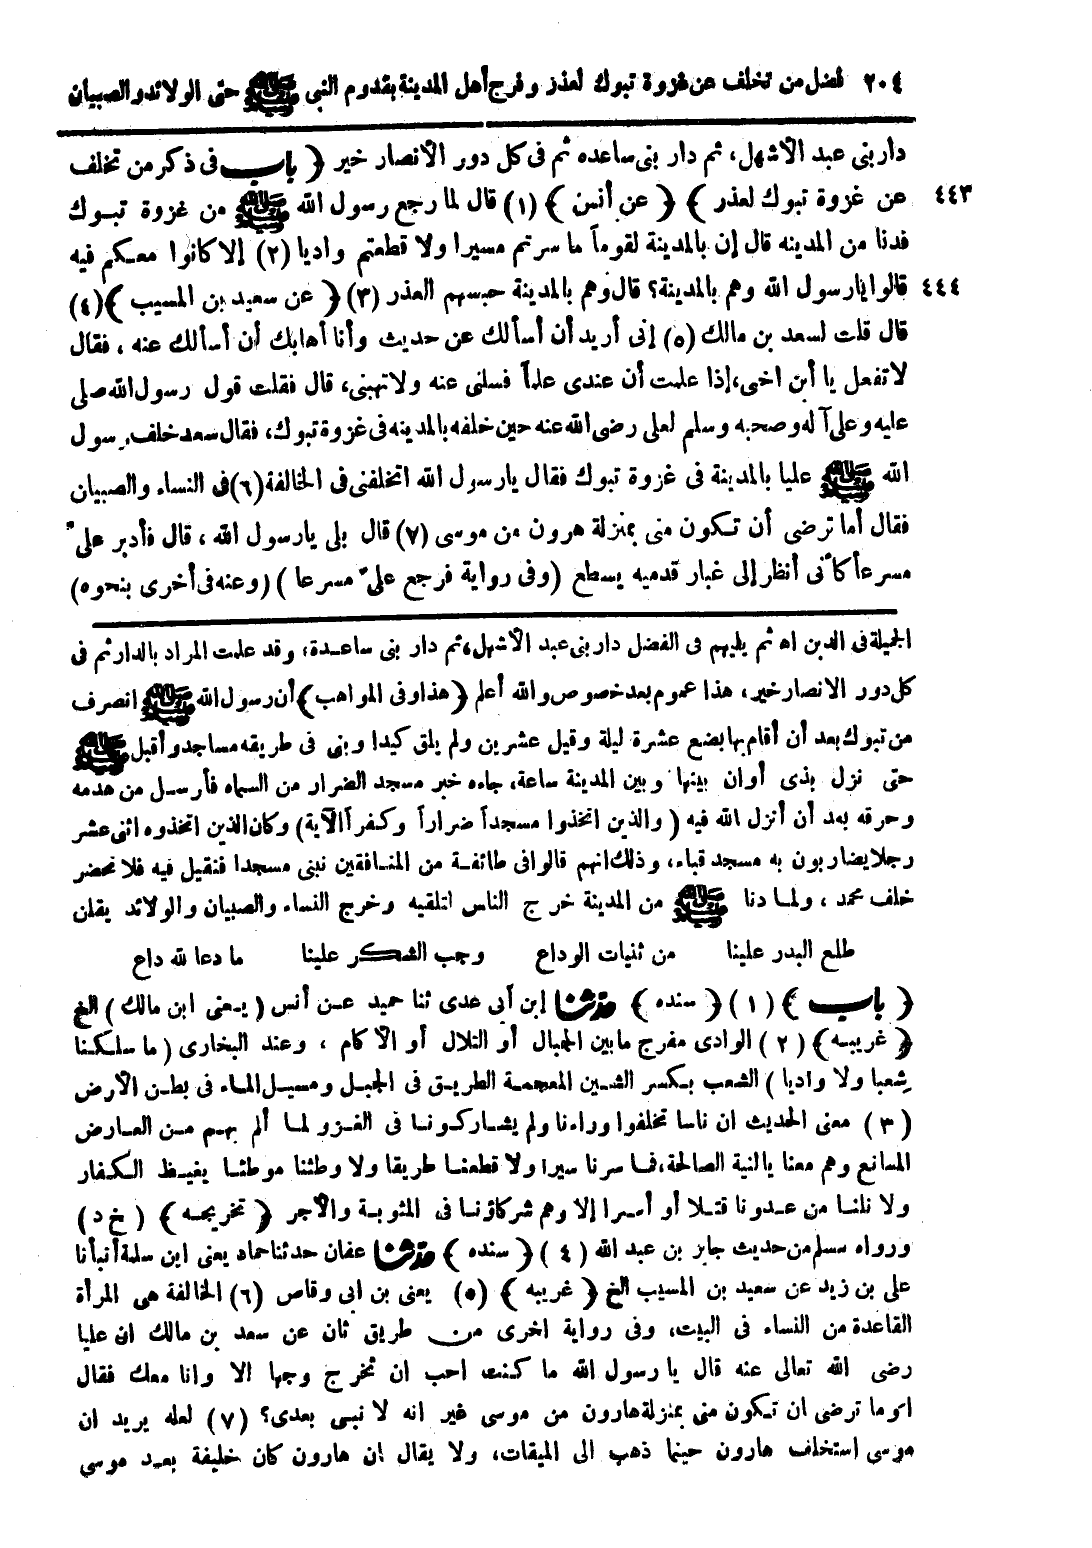 ٢٠٤ فضل من تخلف عن غزوة تبوك لعذر وفرح أهل المدينة بقدوم النبي ﷺ حتى الولائد والصبيان
دار بنى عبد الأشهل، ثم دار بنى ساعده ثم فى كل دور الأنصار خير ﴿ باب فى ذكر من تخلف
٤٤٣ عن غزوة تبوك لعذر ﴾ ﴿ عن أنس ﴾ (١) قال لما رجع رسول الله ﷺ من غزوة تبوك
فدنا من المدينه قال إن بالمدينة لقوماً ما سرتم مسيرا ولا قطعتم واديا (٢) إلا كانوا معكم فيه
٤٤٤ قالوا يارسول الله وهم بالمدينة؟ قال وهم بالمدينة حبسهم العذر (٣) ﴿ عن سعيد بن المسيب ﴾ (٤)
قال قلت لسعد بن مالك (٥) إنى أريد أن أسألك عن حديث وأنا أهابك أن أسألك عنه، فقال
لا تفعل يا أبن اخى، إذا علمت أن عندى علماً فسلنى عنه ولا تهبنى، قال فقلت قول رسول الله صلى
عليه وعلى آله وصحبه وسلم لعلى رضى الله عنه حين خلفه بالمدينه فى غزوة تبوك، فقال سعد خلف رسول
الله ﷺ عليا بالمدينة فى غزوة تبوك فقال يارسول الله اتخلفنى فى الخالفة (٦) فى النساء والصبيان
فقال أما ترضى أن تكون منى بمنزلة هرون من موسى (٧) قال بلى يارسول الله، قال فأدبر علىّ
مسرعا كأنى أنظر إلى غبار قدميه يسطع (وفى رواية فرجع علىّ مسرعا) (وعنه فى أخرى بنحوه)
الجميلة فى الدين اه ثم يليهم فى الفضل دار بنى عبد الأشهل، ثم دار بنى ساعدة، وقد علمت المراد بالدار ثم فى
كل دور الانصار خير، هذا عموم بعد خصوص والله أعلم ﴿هذا وفى المواهب﴾ أن رسول الله ﷺ انصرف
من تبوك بعد أن أقام بها بضع عشرة ليلة وقيل عشرين ولم يلق كيدا وبنى فى طريقه مساجد وأقبل ﷺ
حتى نزل بذى أوان بينها وبين المدينة ساعة، جاءه خبر مسجد الضرار من السماء فأرسل من هدمه
وحرقه بعد أن أنزل الله فيه (والذين اتخذوا مسجداً ضراراً وكفراً الآية) وكان الذين اتخذوه اثنى عشر
رجلا يضاربون به مسجد قباء، وذلك انهم قالوا فى طائفة من المنافقين نبنى مسجدا فنقيل فيه فلا نحضر
خلف محمد، ولما دنا ﷺ من المدينة خرج الناس لتلقيه وخرج النساء والصبيان والولائد يقلن
طلع البدر علينا من ثنيات الوداع وجب الشكر علينا ما دعا لله داع
﴿ باب ﴾ (١) ﴿ سنده ﴾ حدثنا إبن أبى عدى ثنا حميد عن أنس (يعنى ابن مالك) الخ
﴿ غريبه ﴾ (٢) الوادى مفرج ما بين الجبال أو التلال أو الآكام، وعند البخارى (ما سلكنا
شعبا ولا واديا) الشعب بكسر الشين المعجمة الطريق فى الجبل ومسيل الماء فى بطن الأرض
(٣) معنى الحديث ان ناسا تخلفوا وراءنا ولم يشاركونا فى الغزو لما ألم بهم من العارض
المانع وهم معنا بالنية الصالحة، فما سرنا سيرا ولا قطعنا طريقا ولا وطئنا موطئا يغيظ الكفار
ولا نلنا من عدونا قتلا أو أسرا إلا وهم شركاؤنا فى المثوبة والأجر ﴿ تخريجه ﴾ (خ د)
ورواه مسلم من حديث جابر بن عبد الله (٤) ﴿ سنده ﴾ حدثنا عفان حدثنا حماد يعنى ابن سلمة أنبأنا
على بن زيد عن سعيد بن المسيب الخ ﴿ غريبه ﴾ (٥) يعنى بن ابى وقاص (٦) الخالفة هى المرأة
القاعدة من النساء فى البيت، وفى رواية اخرى من طريق ثان عن سعد بن مالك ان عليا
رضى الله تعالى عنه قال يا رسول الله ما كنت احب ان تخرج وجها الا وانا معك فقال
اوما ترضى ان تكون منى بمنزلة هارون من موسى غير انه لا نبى بعدى؟ (٧) لعله يريد ان
موسى استخلف هارون حينما ذهب الى الميقات، ولا يقال ان هارون كان خليفة بعد موسى